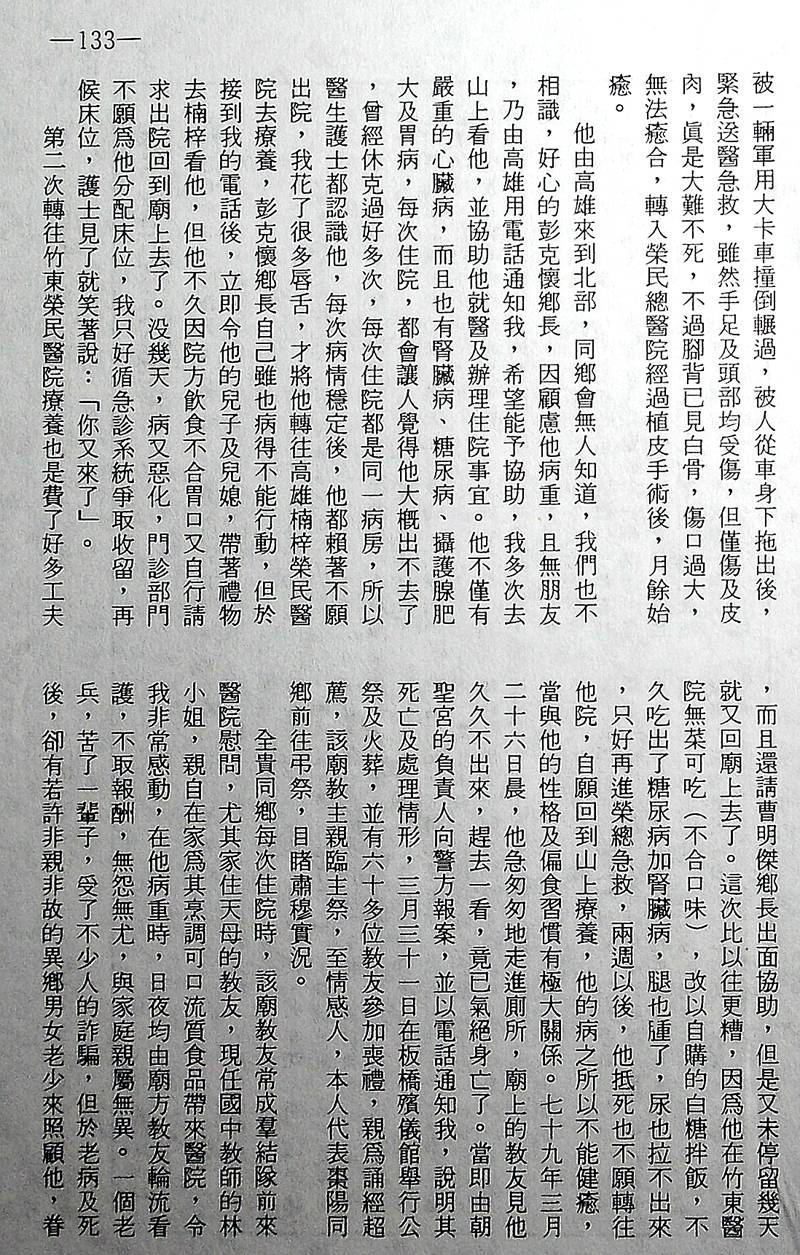 —133—
被一輛軍用大卡車撞倒輾過，被人從車身下拖出後，
緊急送醫急救，雖然手足及頭部均受傷，但僅傷及皮
肉，眞是大難不死，不過腳背已見白骨，傷口過大，
無法癒合，轉入榮民總醫院經過植皮手術後，月餘始
癒。
他由高雄來到北部，同鄉會無人知道，我們也不
相識，好心的彭克懷鄉長，因顧慮他病重，且無朋友
，乃由高雄用電話通知我，希望能予協助，我多次去
山上看他，並協助他就醫及辦理住院事宜。他不僅有
嚴重的心臟病，而且也有腎臟病、糖尿病、攝護腺肥
大及胃病，每次住院，都會讓人覺得他大概出不去了
，曾經休克過好多次，每次住院都是同一病房，所以
醫生護士都認識他，每次病情穩定後，他都賴著不願
出院，我花了很多唇舌，才將他轉往高雄楠梓榮民醫
院去療養，彭克懷鄉長自己雖也病得不能行動，但於
接到我的電話後，立即令他的兒子及兒媳，帶著禮物
去楠梓看他，但他不久因院方飲食不合胃口又自行請
求出院回到廟上去了。没幾天，病又惡化，門診部門
不願爲他分配床位，我只好循急診系統爭取收留，再
候床位，護士見了就笑著說：「你又來了」。
第二次轉往竹東榮民醫院療養也是費了好多工夫
，而且還請曹明傑鄉長出面協助，但是又未停留幾天
就又回廟上去了。這次比以往更糟，因爲他在竹東醫
院無菜可吃（不合口味），改以自購的白糖拌飯，不
久吃出了糖尿病加腎臟病，腿也腫了，尿也拉不出來
，只好再進榮總急救，兩週以後，他抵死也不願轉往
他院，自願回到山上療養，他的病之所以不能健癒，
當與他的性格及偏食習慣有極大關係。七十九年三月
二十六日晨，他急匆匆地走進廁所，廟上的教友見他
久久不出來，趕去一看，竟已氣絕身亡了。當即由朝
聖宮的負責人向警方報案，並以電話通知我，說明其
死亡及處理情形，三月三十一日在板橋殯儀館舉行公
祭及火葬，並有六十多位教友參加喪禮，親爲誦經超
薦，該廟教主親臨主祭，至情感人，本人代表棗陽同
鄉前往弔祭，目睹肅穆實況。
全貴同鄉每次住院時，該廟教友常成羣結隊前來
醫院慰問，尤其家住天母的教友，現任國中教師的林
小姐，親自在家爲其烹調可口流質食品帶來醫院，令
我非常感動，在他病重時，日夜均由廟方教友輪流看
護，不取報酬，無怨無尤，與家庭親屬無異。一個老
兵，苦了一輩子，受了不少人的詐騙，但於老病及死
後，卻有若許非親非故的異鄉男女老少來照顧他，眷